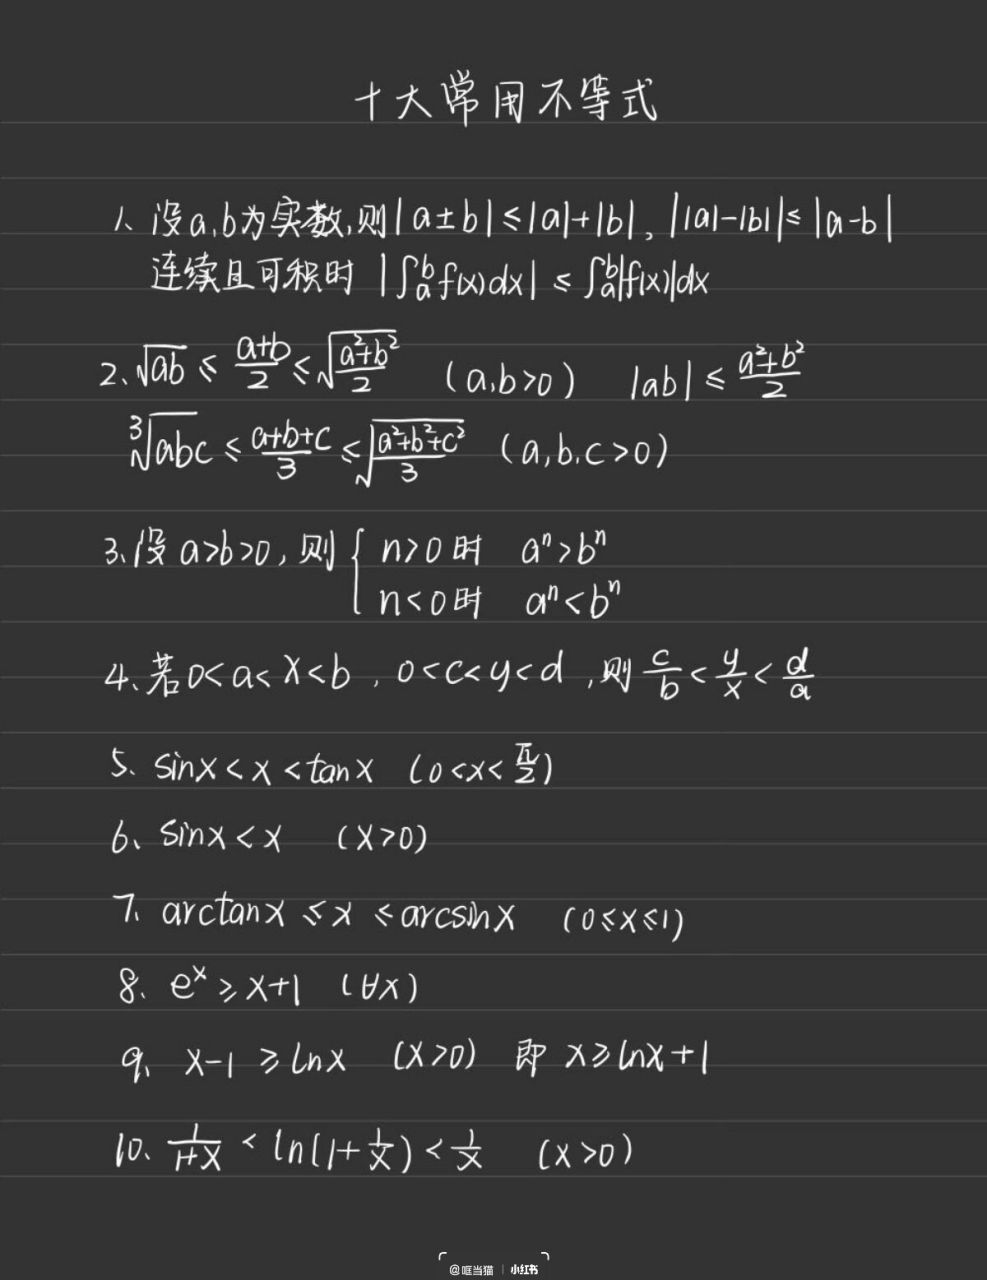 十大常用不等式
1、设a,b为实数,则|a±b|≤|a|+|b|, ||a|-|b||≤|a-b|
连续且可积时 |∫_a^b f(x)dx| ≤ ∫_a^b|f(x)|dx
2、√(ab) ≤ (a+b)/2 ≤ √((a²+b²)/2) (a,b>0) |ab| ≤ (a²+b²)/2
∛(abc) ≤ (a+b+c)/3 ≤ √((a²+b²+c²)/3) (a,b,c>0)
3、设a>b>0, 则{ n>0时 aⁿ>bⁿ
n<0时 aⁿ<bⁿ
4、若0<a<x<b, 0<c<y<d, 则 c/b < y/x < d/a
5、sinx<x<tanx (0<x<π/2)
6、sinx<x (x>0)
7、arctanx ≤ x ≤ arcsinx (0≤x≤1)
8、eˣ ≥ x+1 (∀x)
9、x-1 ≥ lnx (x>0) 即 x≥lnx+1
10、1/(1+x) < ln(1+1/x) < 1/x (x>0)
@哐当猫 | 小红书